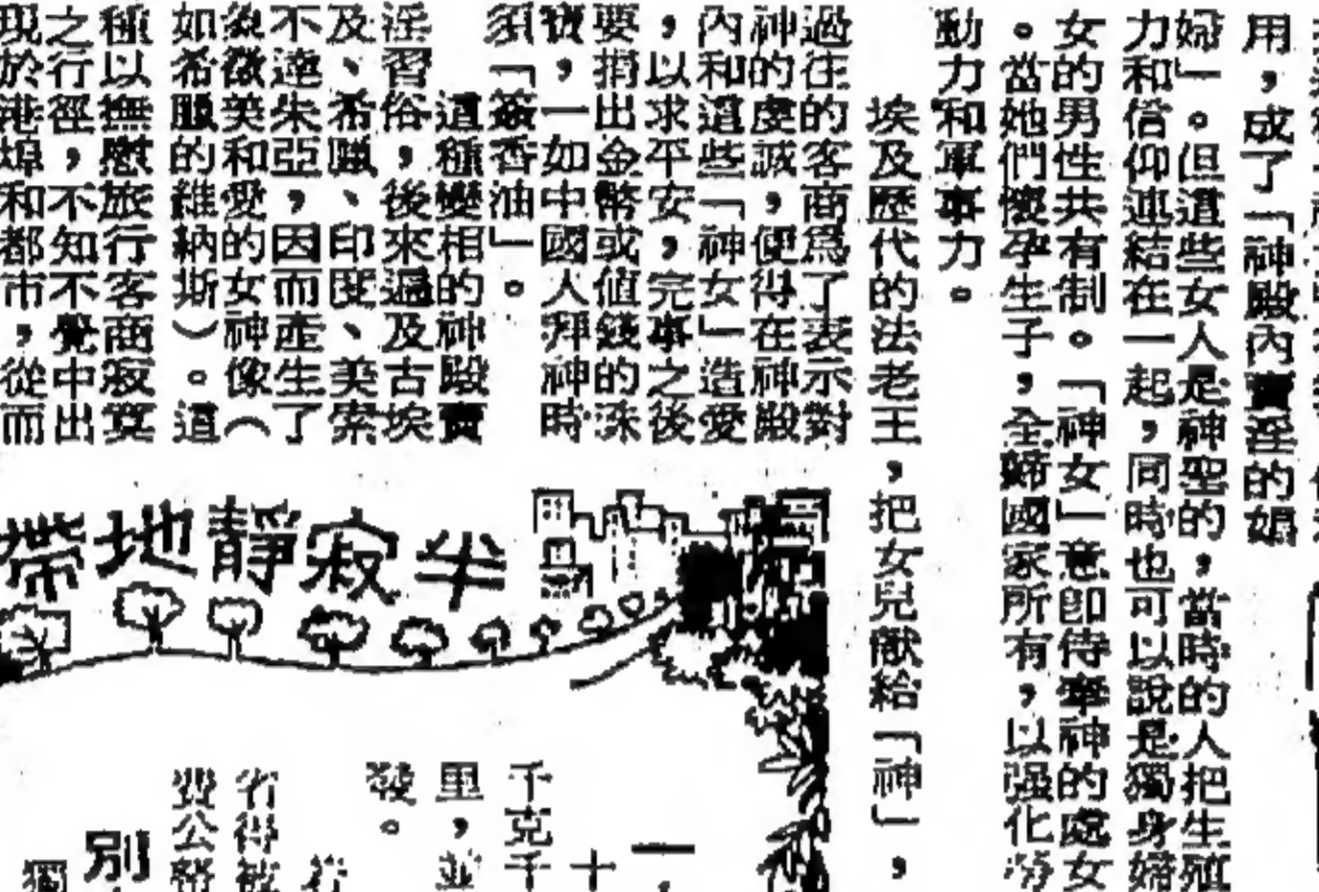 用，成了「神殿內賣淫的娼
婦」。但這些女人是神聖的，當時的人把生殖
力和信仰連結在一起，同時也可以說是獨身婦
女的男性共有制。「神女」意卽侍奉神的處女
。當她們懷孕生子，全歸國家所有，以强化勞
動力和軍事力。
埃及歷代的法老王，把女兒獻給「神」，
過往的客商爲了表示對
神的虔誠，便得在神殿
內和這些「神女」造愛
，以求平安，完事之後
要捐出金幣或值錢的珠
寶，一如中國人拜神時
須「簽香油」。
這種變相的神殿賣
淫習俗，後來遍及古埃
及、希臘、印度、美索
不達朱亞，因而產生了
象徵美和愛的女神像（
如希臘的維納斯）。這
種以撫慰旅行客商寂寞
之行徑，不知不覺中出
現於港埠和都市，從而
半寂靜地帶
一
十
千克千
里，並
發。
省得被
費公帑
別
獨